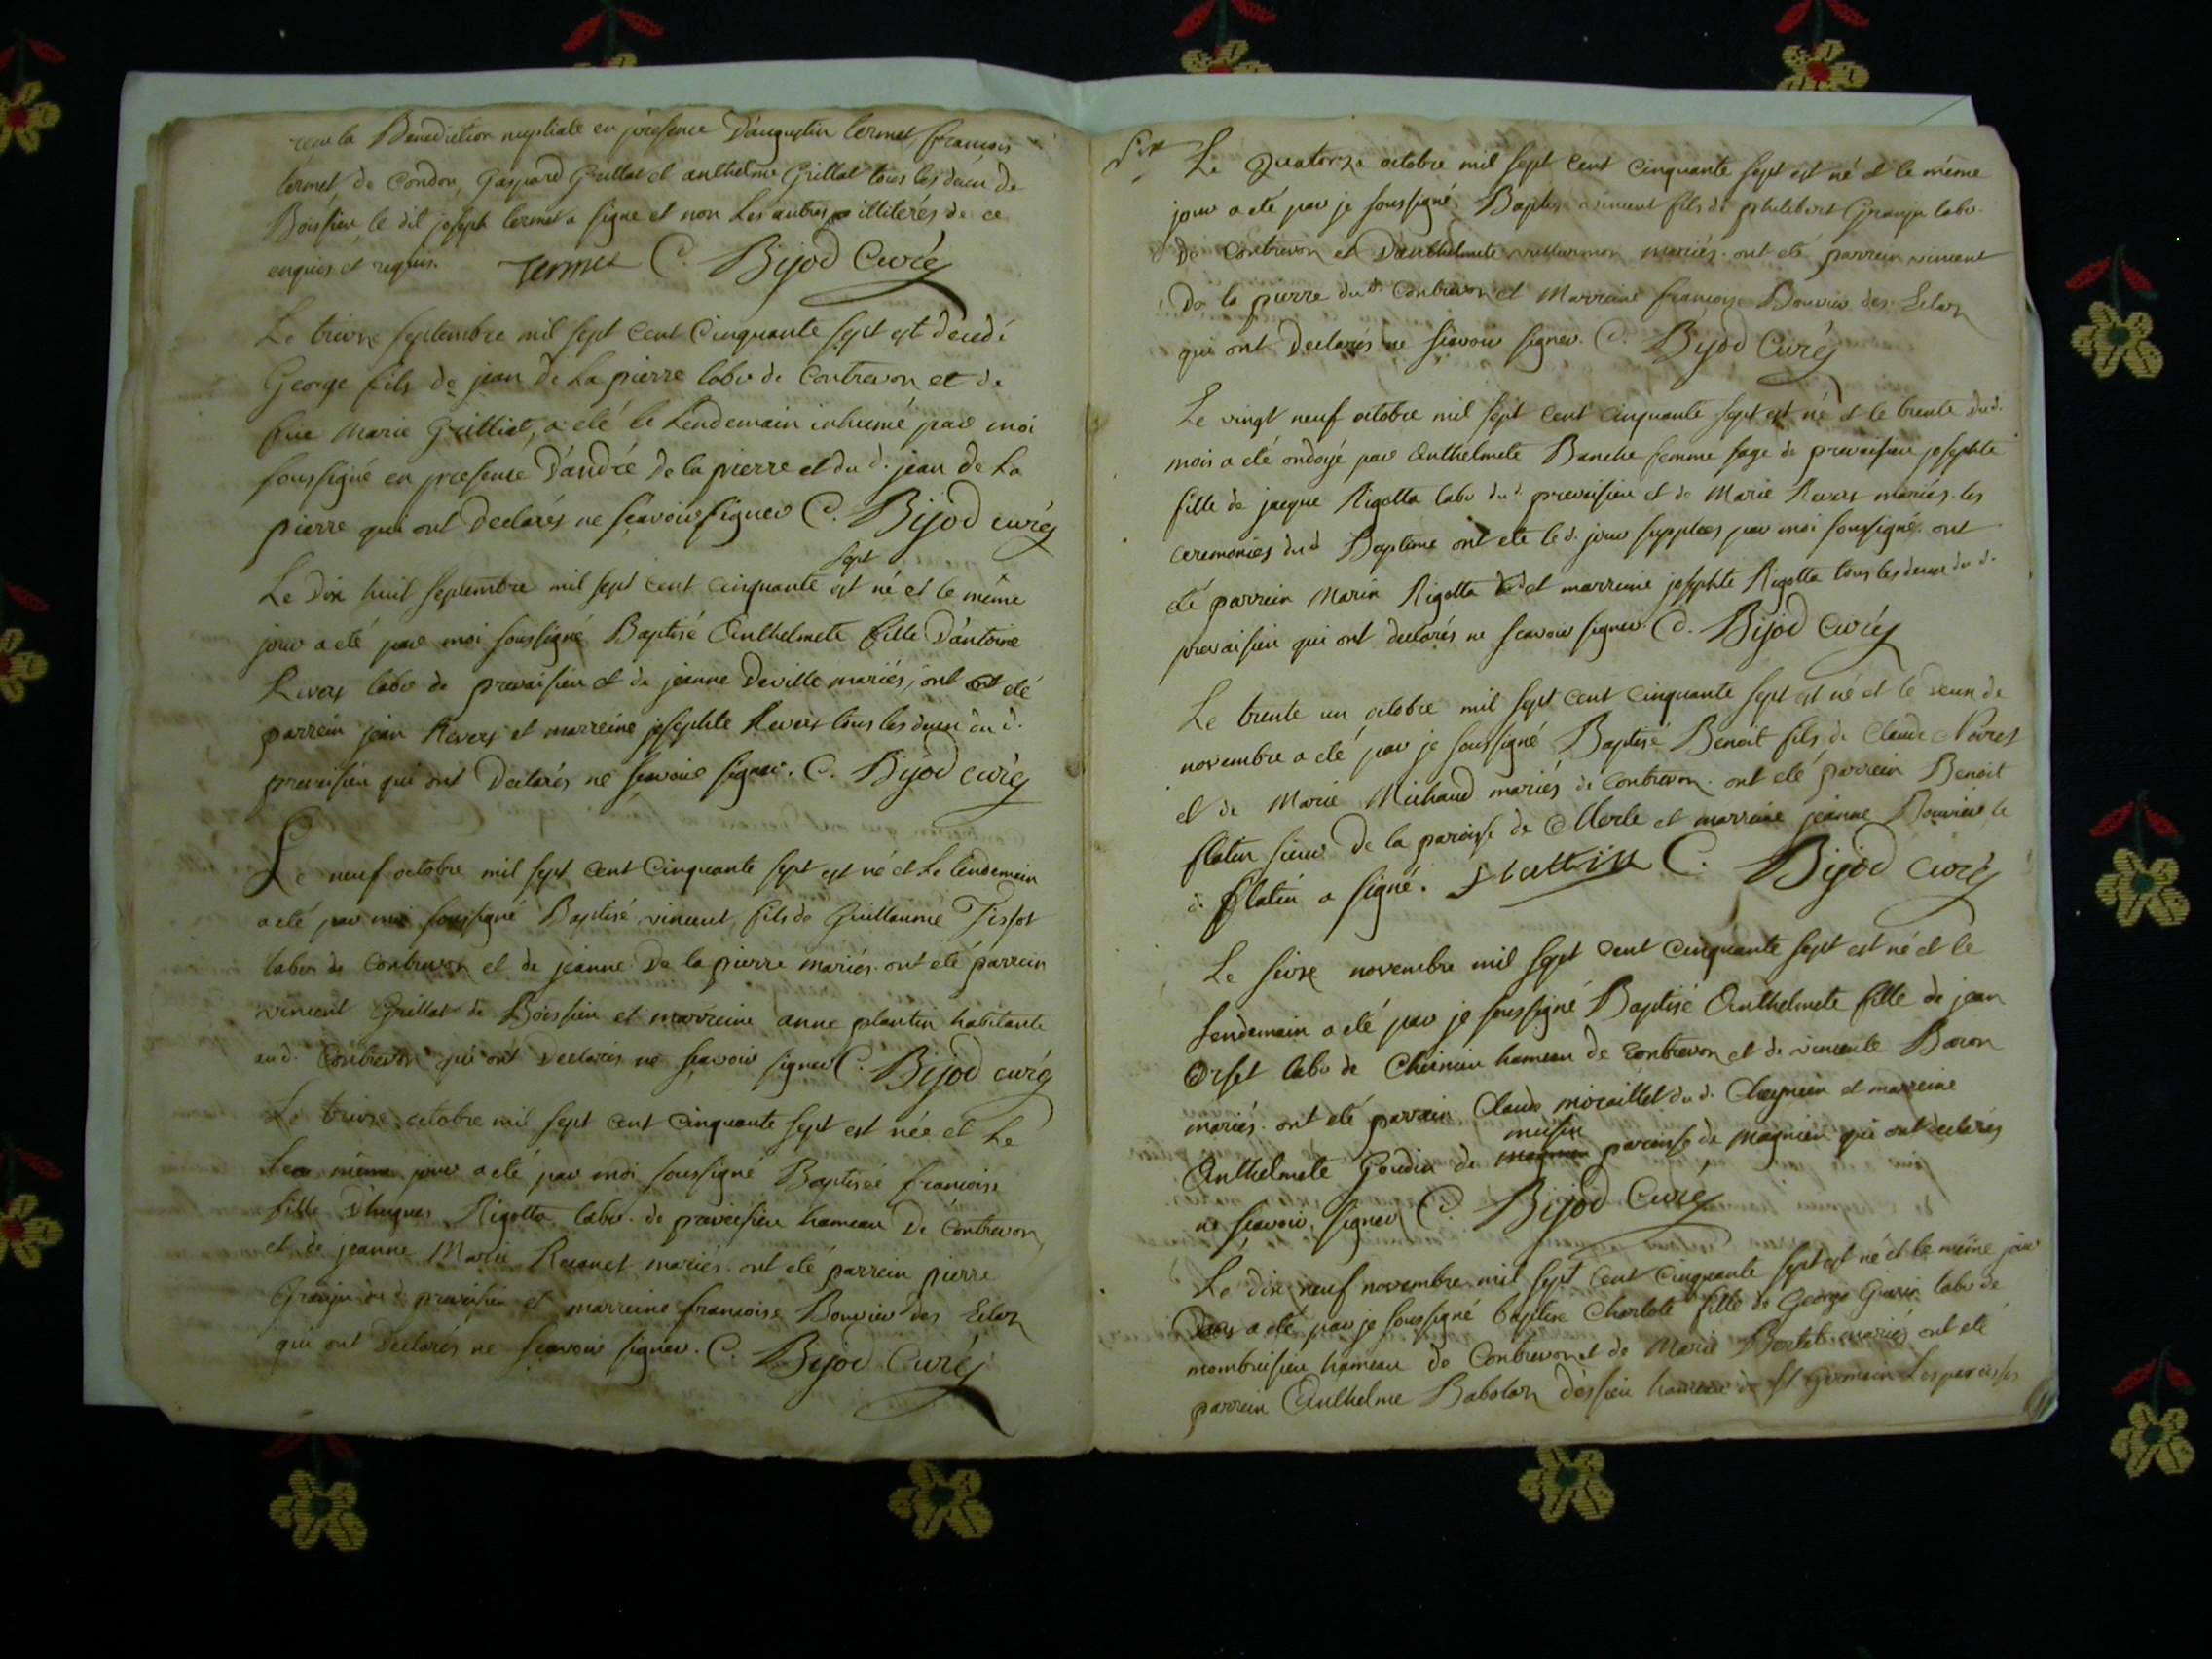 reçu la Benediction nuptiale en presence D'augustin termet francois
termet de Condon, Gaspard Grillat et anthelme Grillat tous les deux de
Boissieu le dit joseph termet a signé et non Les autres illiterés de ce
enquis et requis. Termet C. Bijod Curé
Le treize septembre mil sept cent Cinquante sept est decedé
George fils de jean De La pierre labr de Contrevon et de
feüe Marie Grilliat, a été le Lendemain inhumé par moi
soussigné en presence D'andré de la pierre et du d. jean de La
pierre qui ont Declarés ne sçavoir signer C. Bijod curé
Le Dix huit septembre mil sept cent cinquante sept est né et le même
jour a eté par moi soussigné Baptisé Anthelmete fille D'antoine
Revers labr de prevaisieu et de jeanne Deville mariés, ont eté
parrein jean Revers et marreine josephte Revers tous les deux du d.
prevaisieu qui ont Declarés ne sçavoir signer. C. Bijod curé
Le neuf octobre mil sept cent Cinquante sept est né et Le lendemain
a eté par moi soussigné Baptisé vincent fils de Guillaume Tissot
labr de Contrevon et de jeanne De la pierre mariés. ont eté parrein
vincent Grillat de Boissieu et marreine anne plantin habitante
aud. Contrevon qui ont Declarés ne sçavoir signer C. Bijod curé
Le treize octobre mil sept cent Cinquante sept est née et Le
même jour a eté par moi soussigné Baptisée francoise
fille D'hugues Rigotta labr. de prevaisieu hameau De Contrevon,
et de jeanne Marie mariés. ont eté parrein pierre
Granju du d. prevaisieu et marreine francoise Bouvier des Eclaz
qui ont Declarés ne sçavoir signer. C. Bijod Curé
Le Quatorze octobre mil sept cent Cinquante sept est né et le même
jour a eté par je soussigné Baptisé vincent fils de philibert Granju labr.
De Contrevon et D'anthelmete mariés. ont eté parrein vincent
De la pierre dud. Contrevon et Marreine francoise Bouvier des Eclaz
qui ont Declarés ne sçavoir signer. C. Bijod Curé
Le vingt neuf octobre mil sept cent cinquante sept est né et le trente dud.
mois a eté ondoyé par Anthelmete Banche femme sage de prevaisieu josephte
fille de jacque Rigotta labr dud. prevaisieu et de Marie Revers mariés. les
ceremonies dud Baptême ont eté led. jour supplées par moi soussigné. ont
eté parrein Marin Rigotta et marreine josephte Rigotta tous les deux du d.
prevaisieu qui ont declarés ne sçavoir signer. C. Bijod Curé
Le trente un octobre mil sept cent Cinquante sept est né et le deux de
novembre a eté par je soussigné Baptisé Benoit fils de Claude
et de Marie Michaud mariés de Contrevon. ont eté parrein Benoit
flatin sieur De la paroisse de et marreine jeanne Bouvier le
d. flatin a signé. C. Bijod Curé
Le seize novembre mil sept cent Cinquante sept est né et le
lendemain a eté par je soussigné Baptisé Anthelmete fille de jean
Orset labr de Cheinieu hameau de Contrevon et de vincente Baron
mariés. ont eté parrein Claude moraillet du d. Cheynieu et marreine
Anthelmete Goudin de musin paroisse de magnieu qui ont declarés
ne sçavoir signer C. Bijod Curé
Le dix neuf novembre mil sept cent Cinquante sept est né et le même jour
a eté par je soussigné baptisée Charlote fille de George labr de
mombreisieu hameau de Contrevon et de Marie mariés ont eté
parrein Anthelme Babolon hameau de st germain Les paroisses